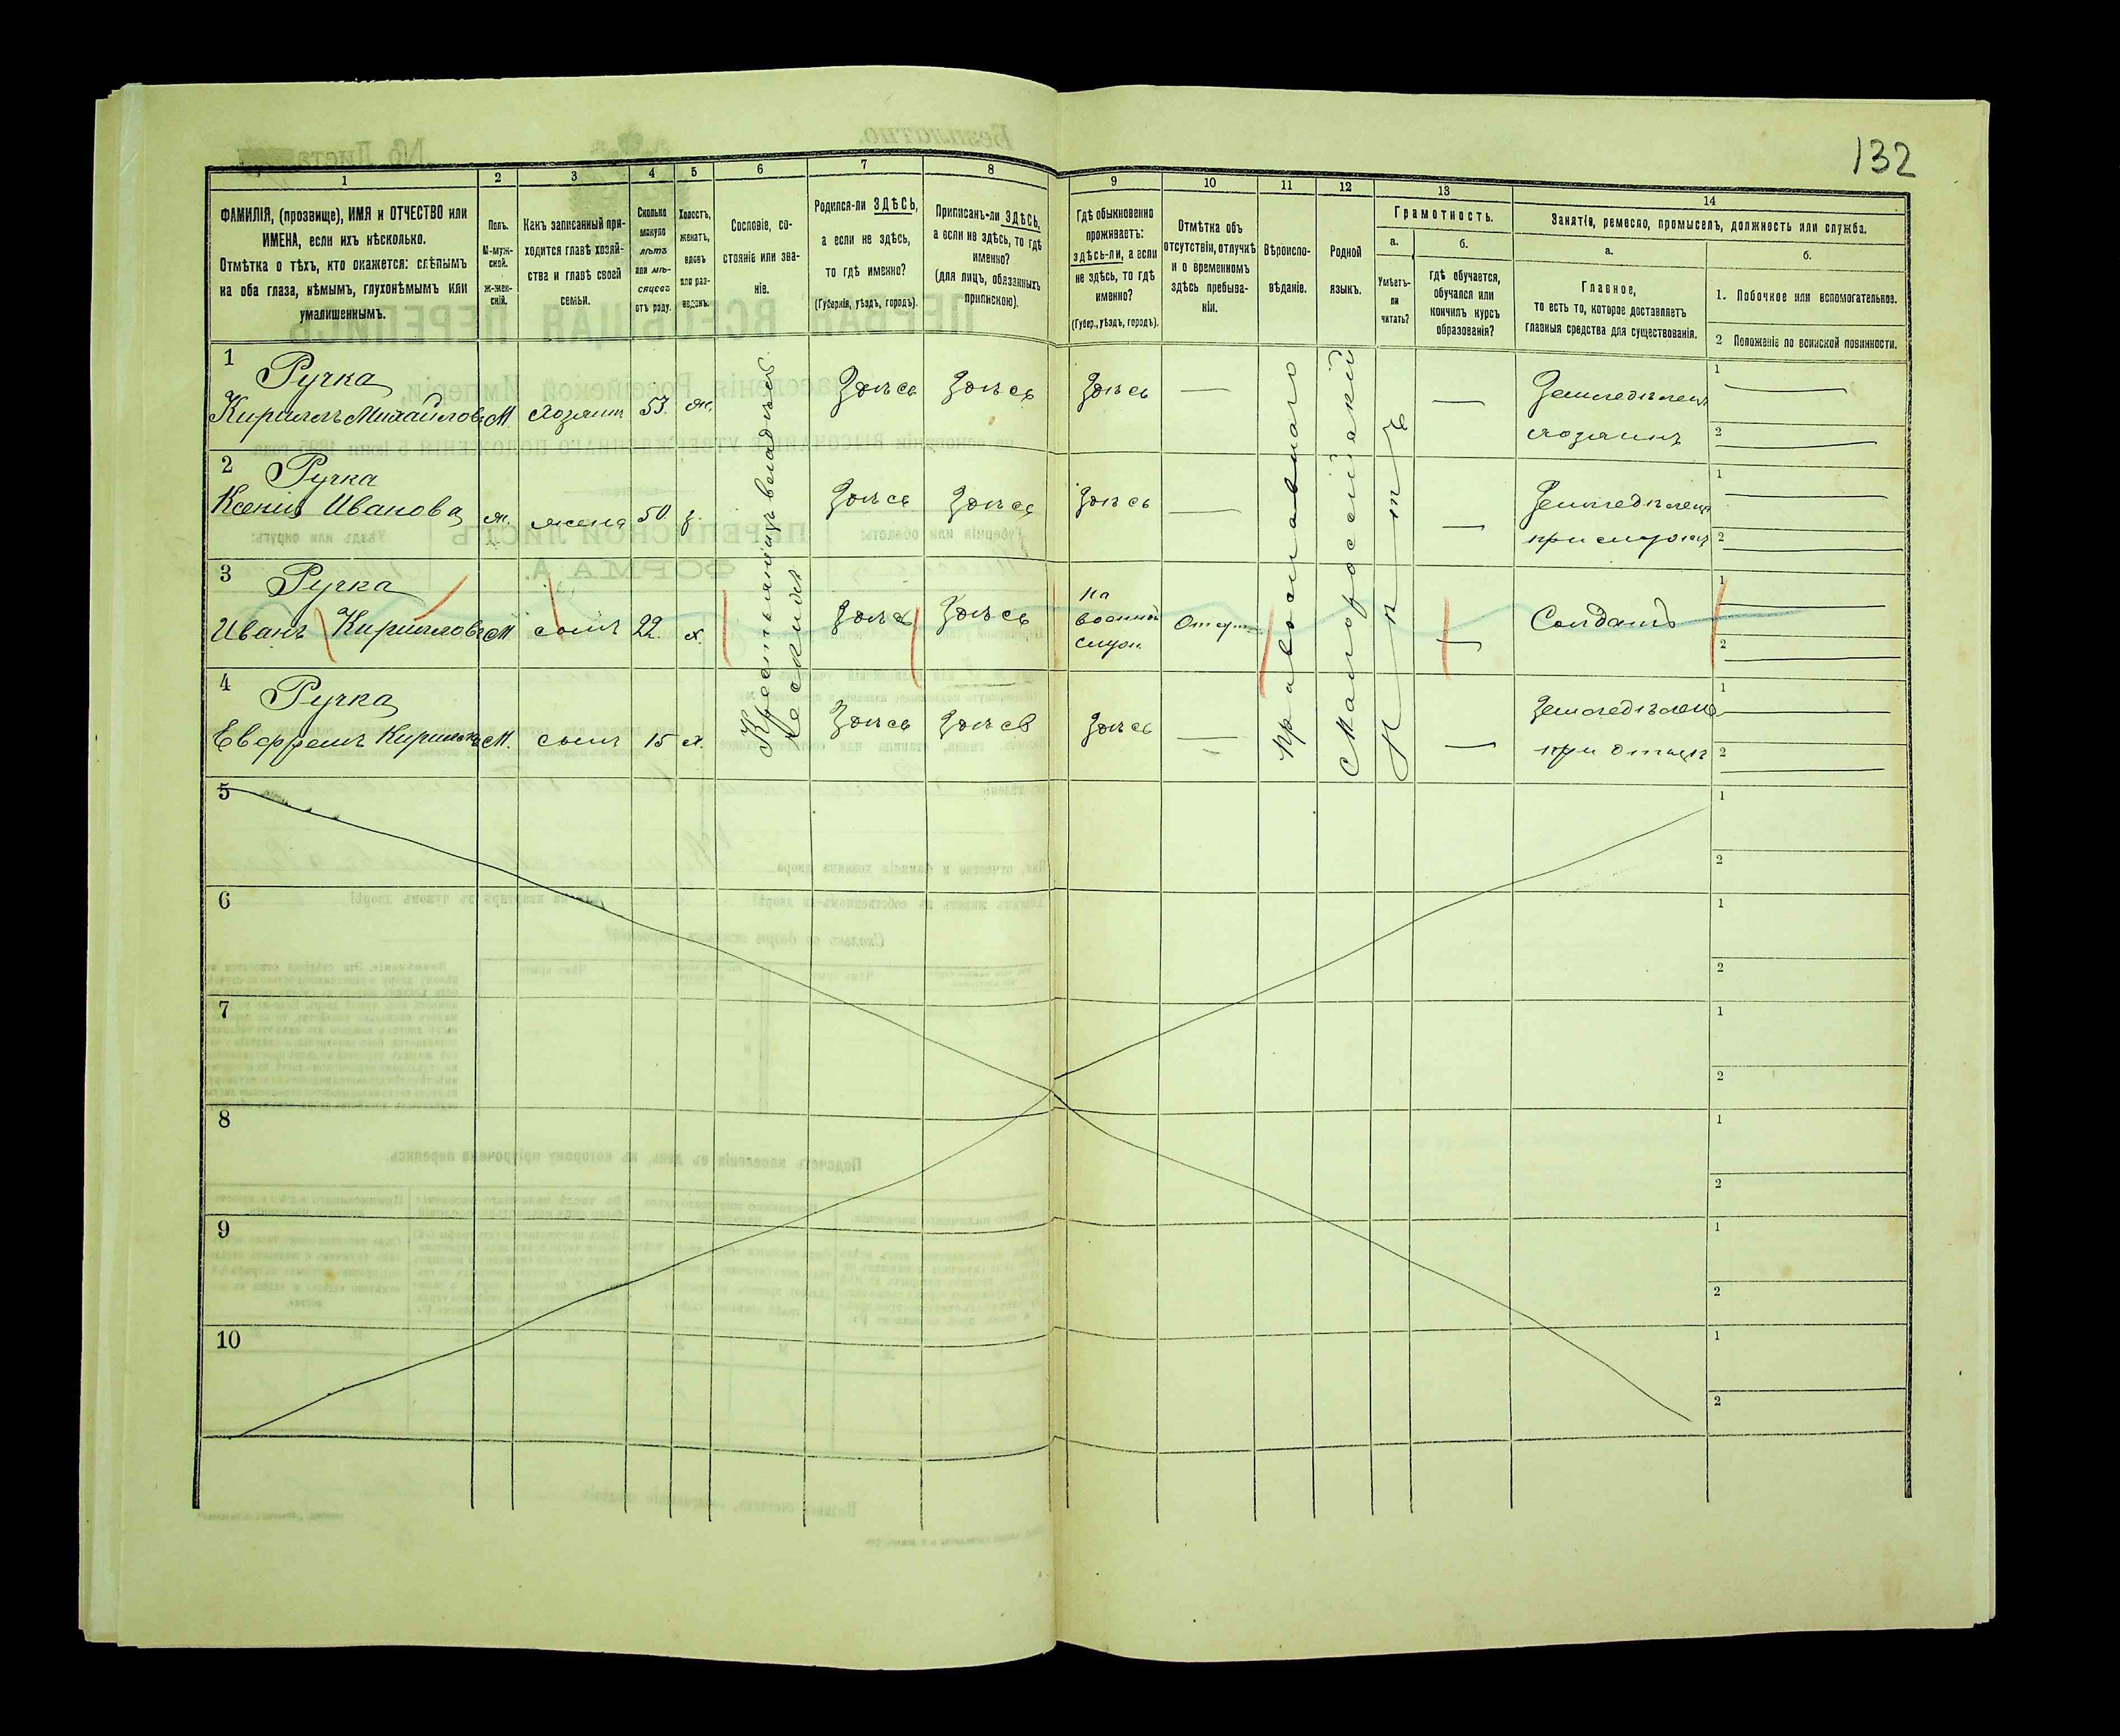 132
1
ФАМИЛІЯ, (прозвище), ИМЯ и ОТЧЕСТВО или
ИМЕНА, если ихъ нѣсколько.
Отмѣтка о тѣхъ, кто окажется: слѣпымъ
на оба глаза, нѣмымъ, глухонѣмымъ или
умалишеннымъ.
2
Полъ.
М-муж-
ской.
ж-жен-
скій.
3
Какъ записанный при-
ходится главѣ хозяй-
ства и главѣ своей
семьи.
4
Сколько
минуло
лѣтъ
или мѣ-
сяцевъ
отъ роду.
5
Холостъ,
женатъ,
вдовъ
или раз-
веденъ.
6
Сословіе, со-
стояніе или зва-
ніе.
7
Родился-ли ЗДѢСЬ,
а если не здѣсь,
то гдѣ именно?
(Губернія, уѣздъ, городъ).
8
Приписанъ-ли ЗДѢСЬ,
а если не здѣсь, то гдѣ
именно?
(для лицъ, обязанныхъ
припискою).
9
Гдѣ обыкновенно
проживаетъ:
здѣсь-ли, а если
не здѣсь, то гдѣ
именно?
(Губер., уѣздъ, городъ).
10
Отмѣтка объ
отсутствіи, отлучкѣ
и о временномъ
здѣсь пребыва-
ніи.
11
Вѣроиспо-
вѣданіе.
12
Родной
языкъ.
13
Грамотность.
а.
Умѣетъ-
ли
читать?
б.
гдѣ обучается,
обучался или
кончилъ курсъ
образованія?
14
Занятія, ремесло, промыселъ, должность или служба.
а.
Главное,
то есть то, которое доставляетъ
главныя средства для существованія.
б.
1. Побочное или вспомогательное.
2 Положеніе по воинской повинности.
1
Ручка
Кириллъ Михайловъ М. хозяин 53. ж. Здѣсь Здѣсь Здѣсь —
— Земледѣлец
хозяинъ
1 —
2 —
2
Ручка
Ксенія Иванова ж. жена 50 з. Здѣсь Здѣсь Здѣсь —
— Земледѣлец
1 —
2 —
3
Ручка
Иванъ Кирилловъ М сынъ 22. х. Здѣсь Здѣсь
на
военной
служ.
— Солдатъ
1 —
2 —
4
Ручка
М. сынъ 15 х. Здѣсь Здѣсь Здѣсь —
— Земледѣлец
при отцѣ
1 —
2 —
Православнаго
Малороссійскій
Нѣтъ
5
1
2
6
1
2
7
1
2
8
1
2
9
1
2
10
1
2